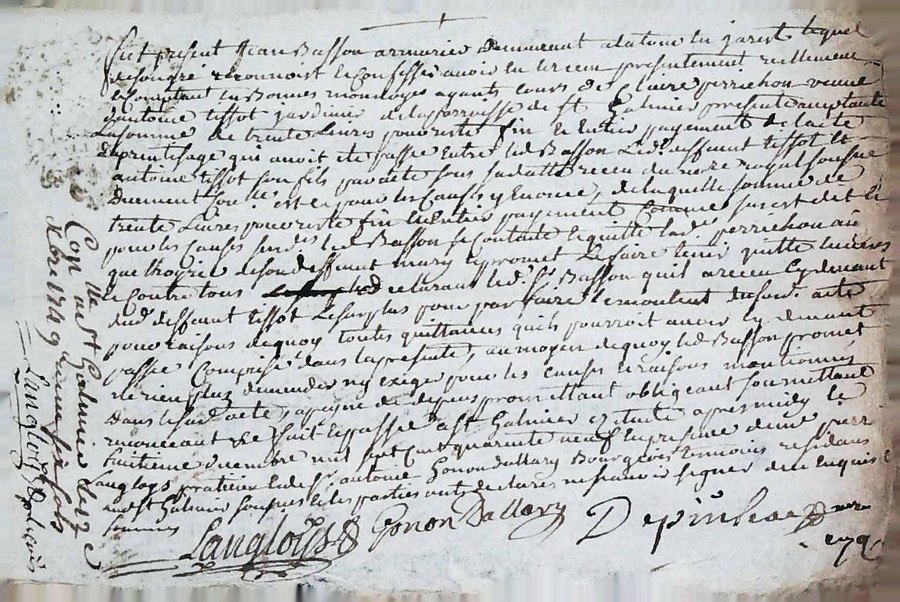 fut present Jean Basson armurier demeurant a la tour en jarest lequel
de son gré reconnoist et confesse avoir eu et receu presentement reellement
et comptant en bonnes monnoyes ayants cours de Claire perrichon veuve
d'antoine tissot jardinier de la parroisse de st Galmier presente acceptante
la somme de trente livres pour reste fin et entier payement de l'acte
d'aprintisage qui avoit ete passé entre led Basson led deffunt tissot et
antoine tissot son fils par acte sous sa datte receu du nore royal soussné
duement conlle est et pour les causes y enoncé, de laquelle somme de
trente livres pour reste fin et entier payement comme sus est dit et
pour les causes surdes led Basson se contente et quitte lad perrichon au
que l'hoyrie de son deffunt mary et promet les faire tenir quitte envers
et contre tous declarant led sr Basson qu'il a receu cy devant
dud deffunt tissot le surplus pour parfaire le montant dud acte
pour raisons de quoy toutes quittances qu'ils pourroit avoir cy devant
passée comprise dans la presente, au moyen de quoy led Basson promet
ne rien plus demander ny exiger pour les causes et raisons mantionnés
dans led acte, a peyne de depens promettant obligeant soumettant
renonceant &c fait et passé a st Galmier etude apres midy le
huitieme decembre mil sept cent quarante neuf en presence de me pierre
langloys praticien et de sr antoine Gonon dallary Bourgeois temoins residans
aud st Galmier soussnes et les parties ont declarés ne scavoir signer de ce enquis et
sommés
Langloys Gonon Dallary Depinhac nore
royal
Con lle a st Galmier le 17e
Xbre 1749 Receu six sols
Langloys